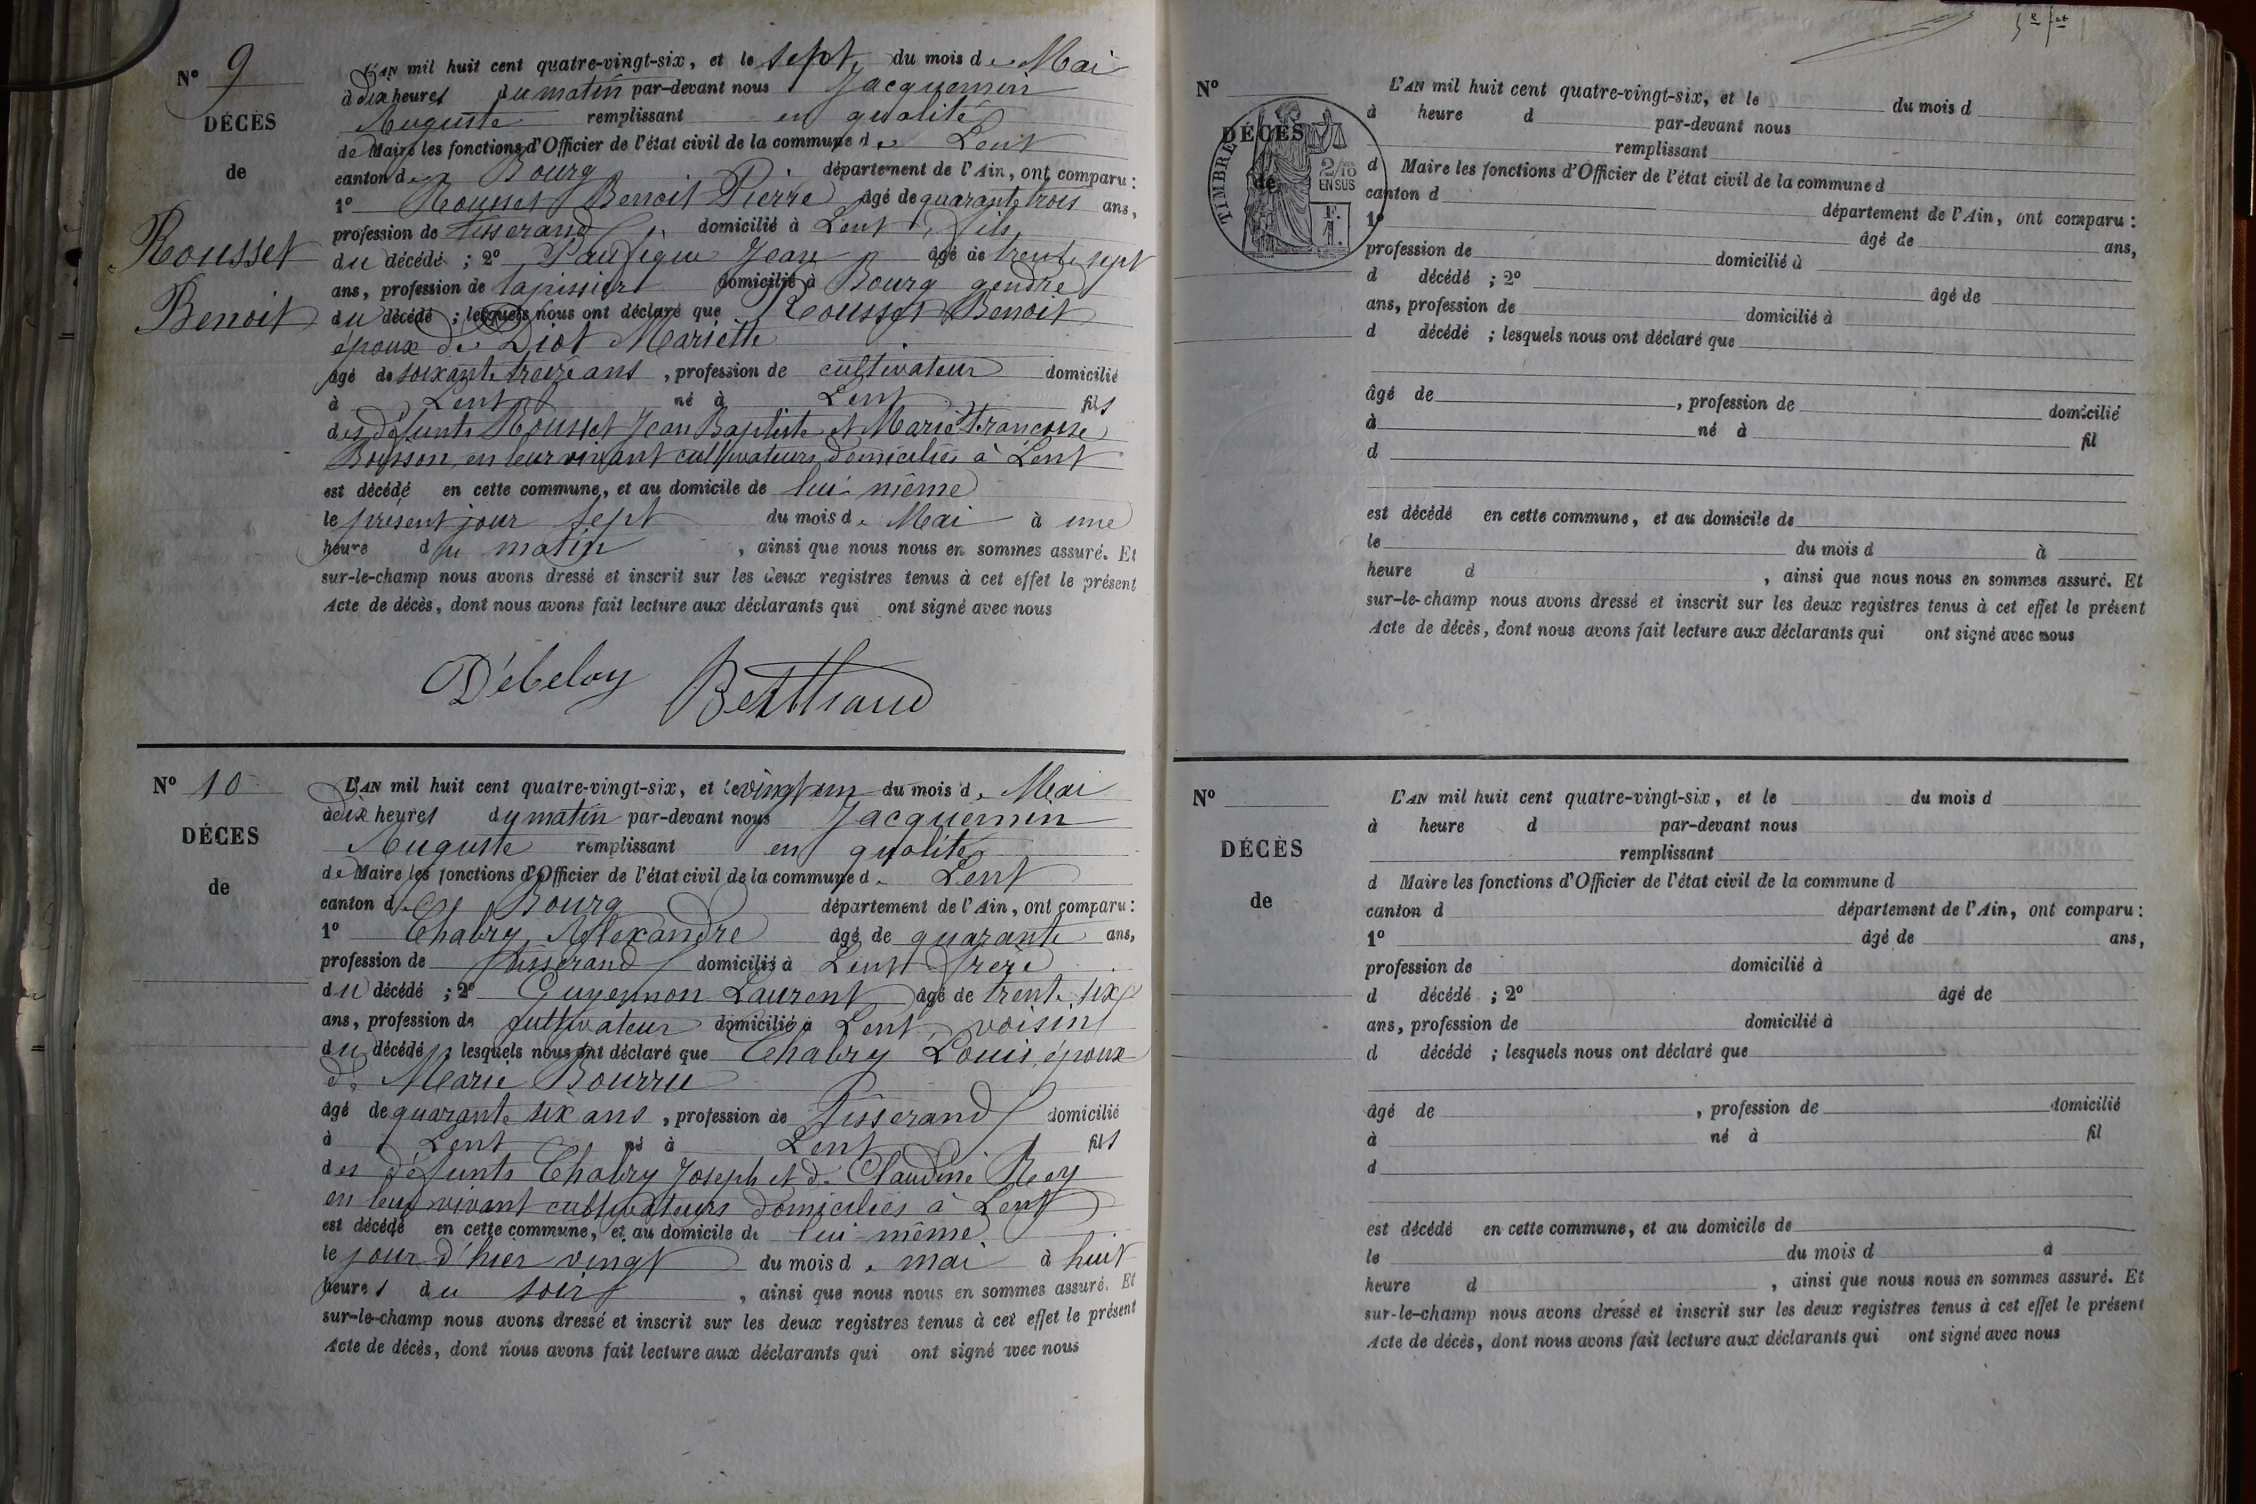 N° 9
DÉCÈS
de
Rousset
Benoit
L'AN mil huit cent quatre-vingt-six, et le sept du mois de Mai
à dix heures du matin par-devant nous Jacquemin
Auguste remplissant en qualité
de Maire les fonctions d'Officier de l'état civil de la commune de Lent
canton de Bourg département de l'Ain, ont comparu :
1° Rousset Benoit Pierre âgé de quarante trois ans,
profession de tisserand domicilié à Lent, fils
du décédé ; 2° Jean âgé de trente sept
ans, profession de tapissier domicilié à Bourg gendre
du décédé ; lesquels nous ont déclaré que Rousset Benoit
époux de Diot Mariette
âgé de soixante treize ans, profession de cultivateur domicilié
à Lent né à Lent fils
des défunts Rousset Jean Baptiste et Marie Francoise
Boysson en leur vivant cultivateurs domiciliés à Lent
est décédé en cette commune, et au domicile de lui-même
le présent jour sept du mois de Mai à une
heure du matin, ainsi que nous nous en sommes assuré. Et
sur-le-champ nous avons dressé et inscrit sur les deux registres tenus à cet effet le présent
Acte de décès, dont nous avons fait lecture aux déclarants qui ont signé avec nous
Débeloy Berthaud
N° 10
DÉCES
de
L'AN mil huit cent quatre-vingt-six, et le vingt un du mois de Mai
à dix heures du matin par-devant nous Jacquemin
Auguste remplissant en qualité
de Maire les fonctions d'Officier de l'état civil de la commune de Lent
canton de Bourg département de l'Ain, ont comparu :
1° Chabry Alexandre âgé de quarante ans,
profession de tisserand domicilié à Lent frère
du décédé ; 2° Guyennon Laurent âgé de trente six
ans, profession de cultivateur domicilié à Lent voisin
du décédé ; lesquels nous ont déclaré que Chabry Louis, époux
de Marie Bourru
âgé de quarante six ans, profession de Tisserand domicilié
à Lent né à Lent fils
des défunts Chabry Joseph et de Claudine Rey
en leur vivant cultivateurs domiciliés à Lent
est décédé en cette commune, et au domicile de lui-même
le jour d'hier vingt du mois de mai à huit
heures du soir, ainsi que nous nous en sommes assuré. Et
sur-le-champ nous avons dressé et inscrit sur les deux registres tenus à cet effet le présent
Acte de décès, dont nous avons fait lecture aux déclarants qui ont signé avec nous
N°
DÉCÈS
de
TIMBRE
2/10
EN SUS
F.
1.
L'AN mil huit cent quatre-vingt-six, et le du mois d
à heure d par-devant nous
remplissant
d Maire les fonctions d'Officier de l'état civil de la commune d
canton d département de l'Ain, ont comparu :
1° âgé de ans,
profession de domicilié à
d décédé ; 2° âgé de
ans, profession de domicilié à
d décédé ; lesquels nous ont déclaré que
âgé de , profession de domicilié
à né à fil
d
est décédé en cette commune, et au domicile de
le du mois d à
heure d , ainsi que nous nous en sommes assuré. Et
sur-le-champ nous avons dressé et inscrit sur les deux registres tenus à cet effet le présent
Acte de décès, dont nous avons fait lecture aux déclarants qui ont signé avec nous
N°
DÉCÈS
de
L'AN mil huit cent quatre-vingt-six, et le du mois d
à heure d par-devant nous
remplissant
d Maire les fonctions d'Officier de l'état civil de la commune d
canton d département de l'Ain, ont comparu :
1° âgé de ans,
profession de domicilié à
d décédé ; 2° âgé de
ans, profession de domicilié à
d décédé ; lesquels nous ont déclaré que
âgé de , profession de domicilié
à né à fil
d
est décédé en cette commune, et au domicile de
le du mois d à
heure d , ainsi que nous nous en sommes assuré. Et
sur-le-champ nous avons dressé et inscrit sur les deux registres tenus à cet effet le présent
Acte de décès, dont nous avons fait lecture aux déclarants qui ont signé avec nous